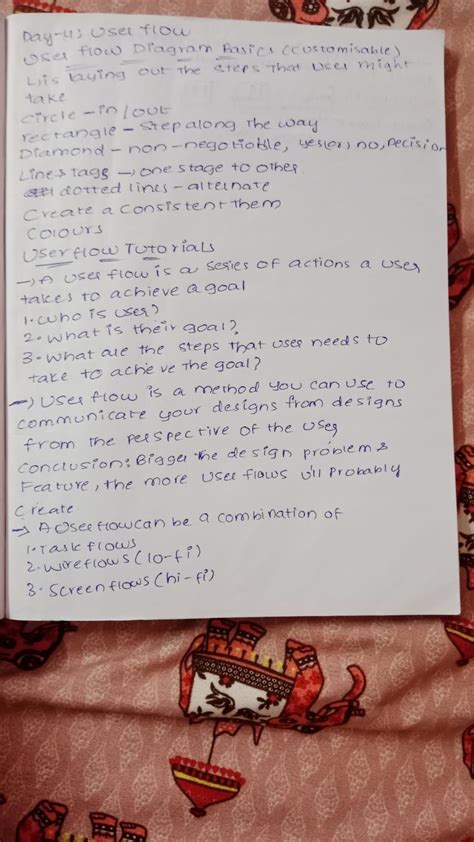 Day-4: User flow
User flow Diagram Basics (customisable)
L is laying out the steps that user might
take
circle - in/out
rectangle - step along the way
Diamond - non-negotiable, yes(or) no, Decision
Lines tags → one stage to other
dotted lines - alternate
Create a consistent them
Colours
User flow Tutorials
→ A user flow is a series of actions a user
takes to achieve a goal
1. Who is user?
2. What is their goal?
3. What are the steps that user needs to
take to achieve the goal?
→ User flow is a method you can use to
communicate your designs from designs
from the perspective of the user
Conclusion: Bigger the design problem &
Feature, the more user flows u'll probably
create
→ A User flow can be a combination of
1. Task flows
2. Wireflows (lo-fi)
3. Screenflows (hi-fi)